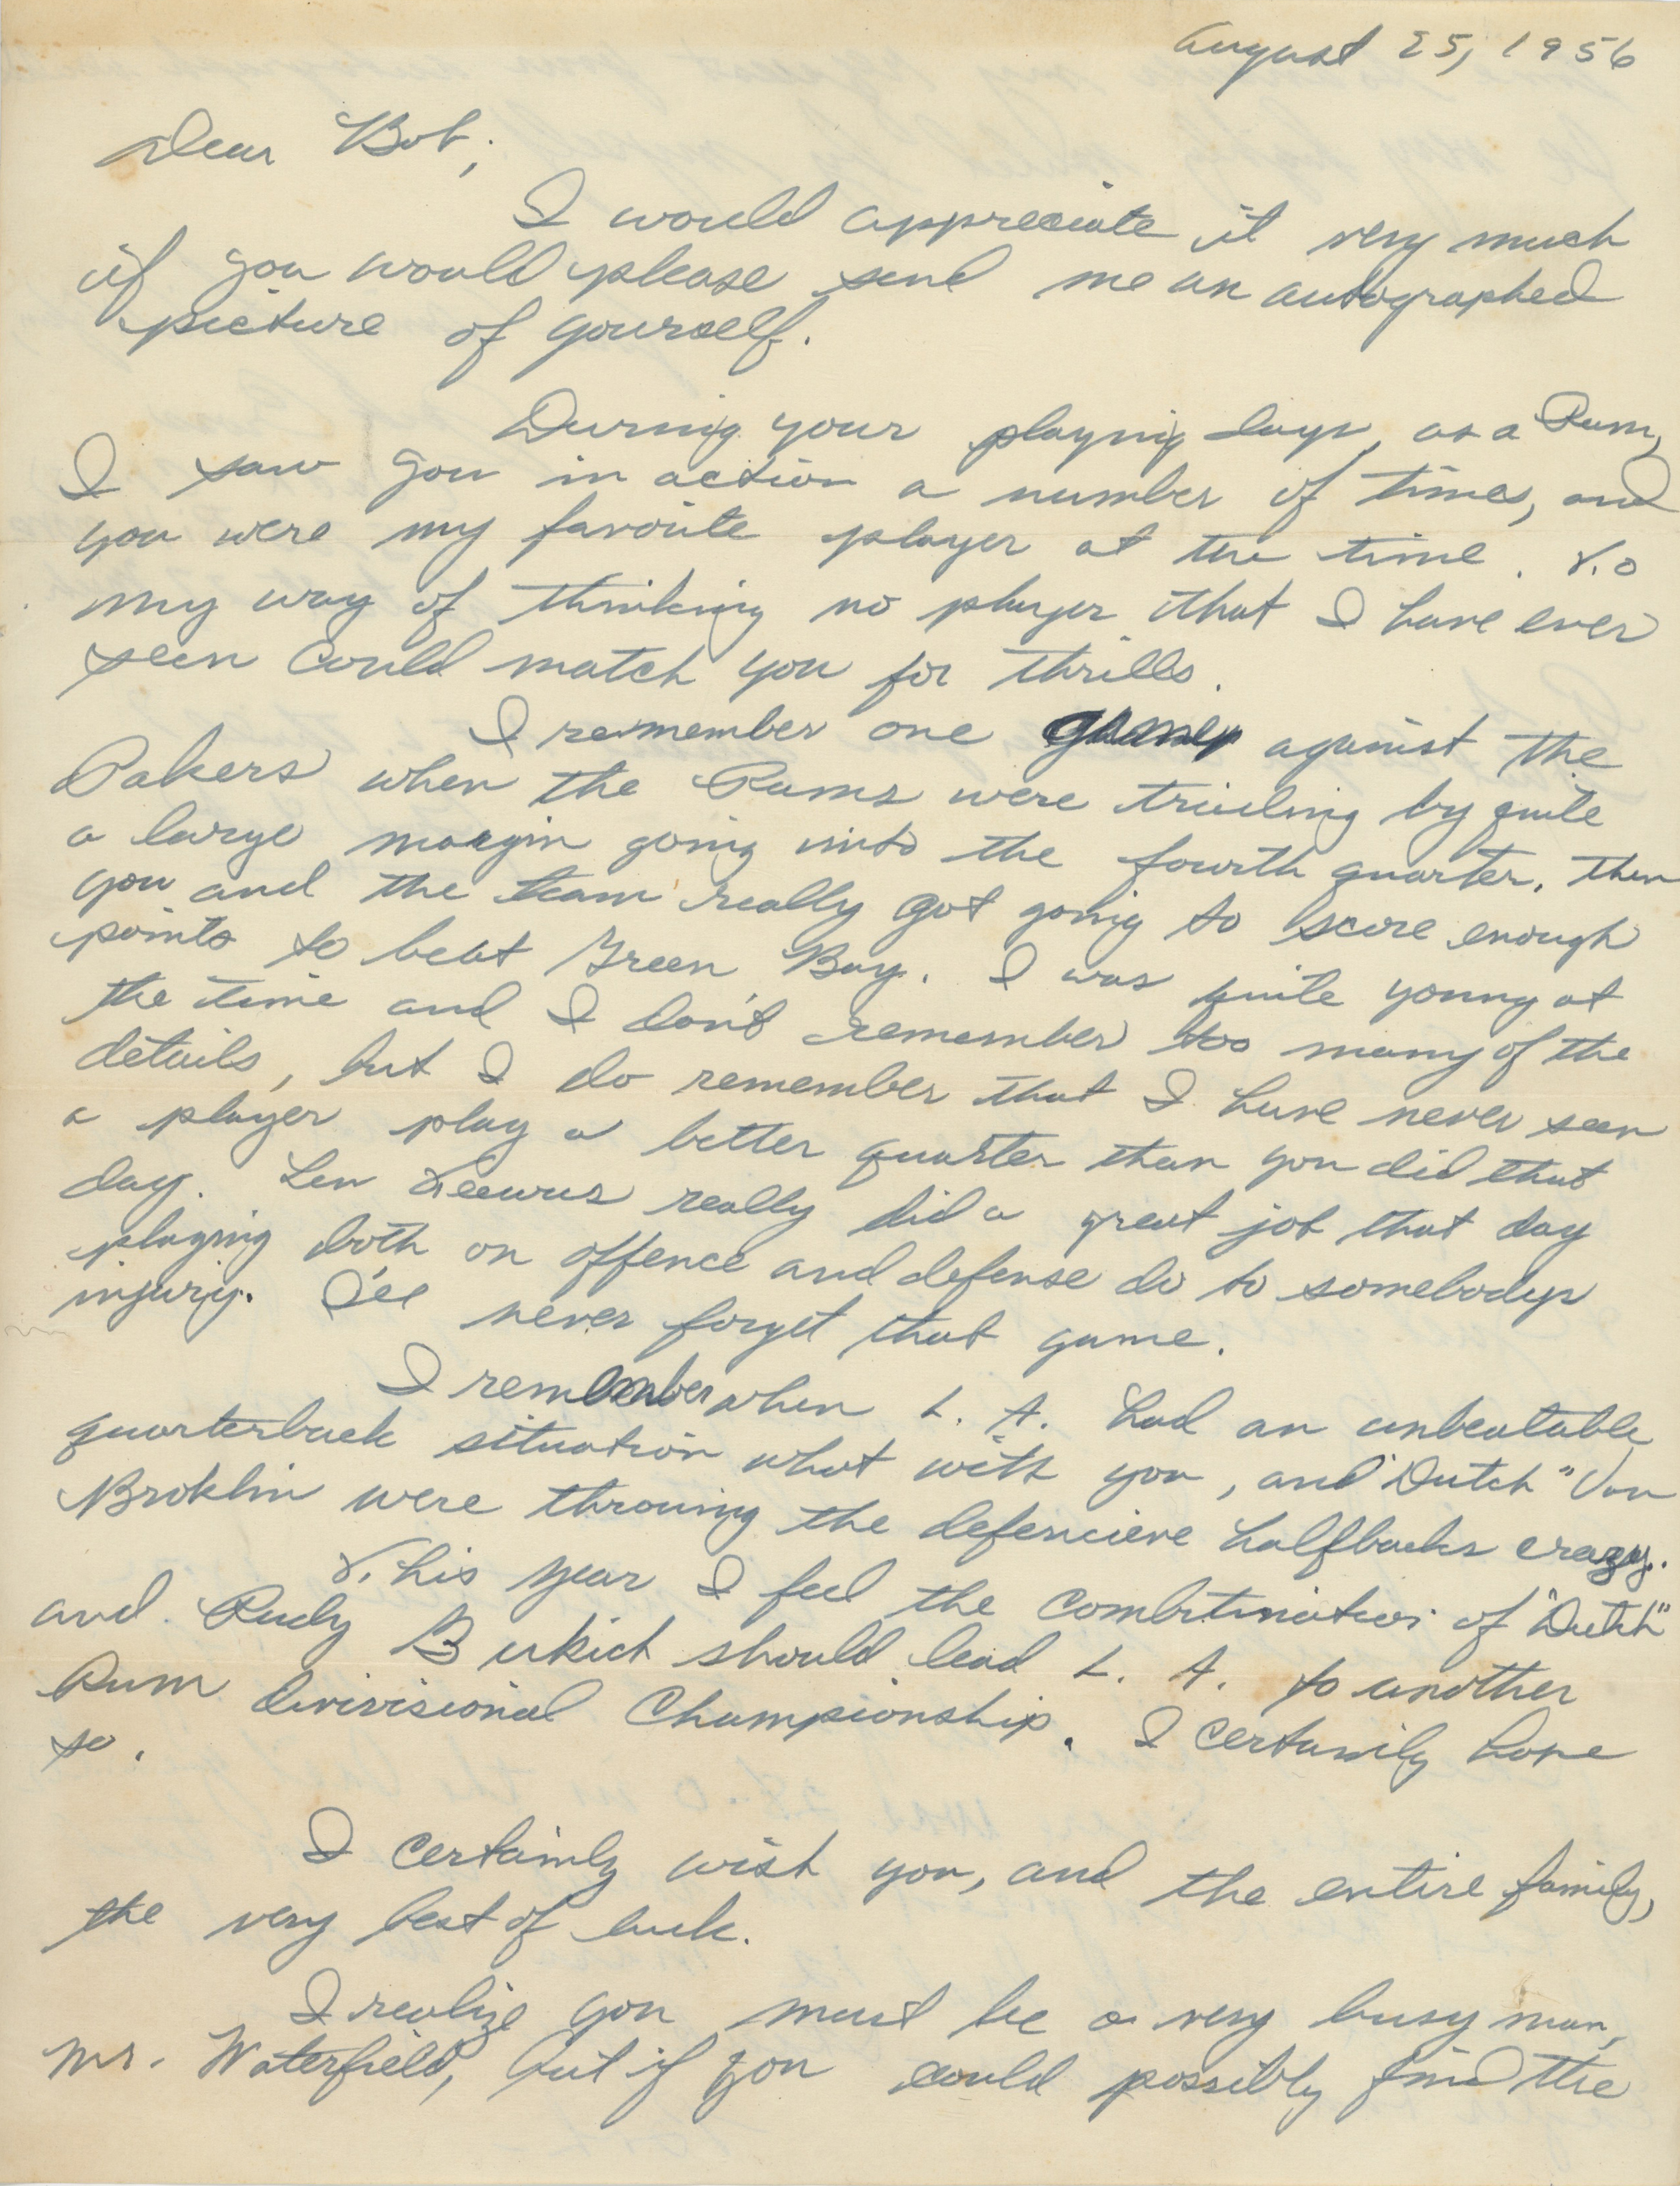 August 25, 1956
Dear Bob,
I would appreciate it very much
if you would please send me an autographed
picture of yourself.
During your playing days, as a Ram,
I saw you in action a number of times, and
you were my favorite player at the time. To
my way of thinking no player that I have ever
seen could match you for thrills.
I remember one game against the
Pakers when the Rams were trieling by quite
a large margin going into the fourth quarter. Then
you and the team really got going to score enough
points to beat Green Bay. I was quite young at
the time and I don't remember too many of the
details, but I do remember that I have never seen
a player play a better quarter than you did that
day. Len really did a great job that day
playing both on offence and defense do to somebodys
injury. I'll never forget that game.
I remember when L. A. had an unbeatable
quarterback situation what with you, and "Dutch" Van
Broklin were throwing the defencieve halfbacks crazy.
This year I feel the of "Dutch"
and Rudy Bukich should lead L. A. to another
Ram divisional Championship. I certainly hope
so.
I certainly wish you, and the entire family,
the very best of luck.
I realize you must be a very busy man,
Mr. Waterfield, but if you could possibly find the